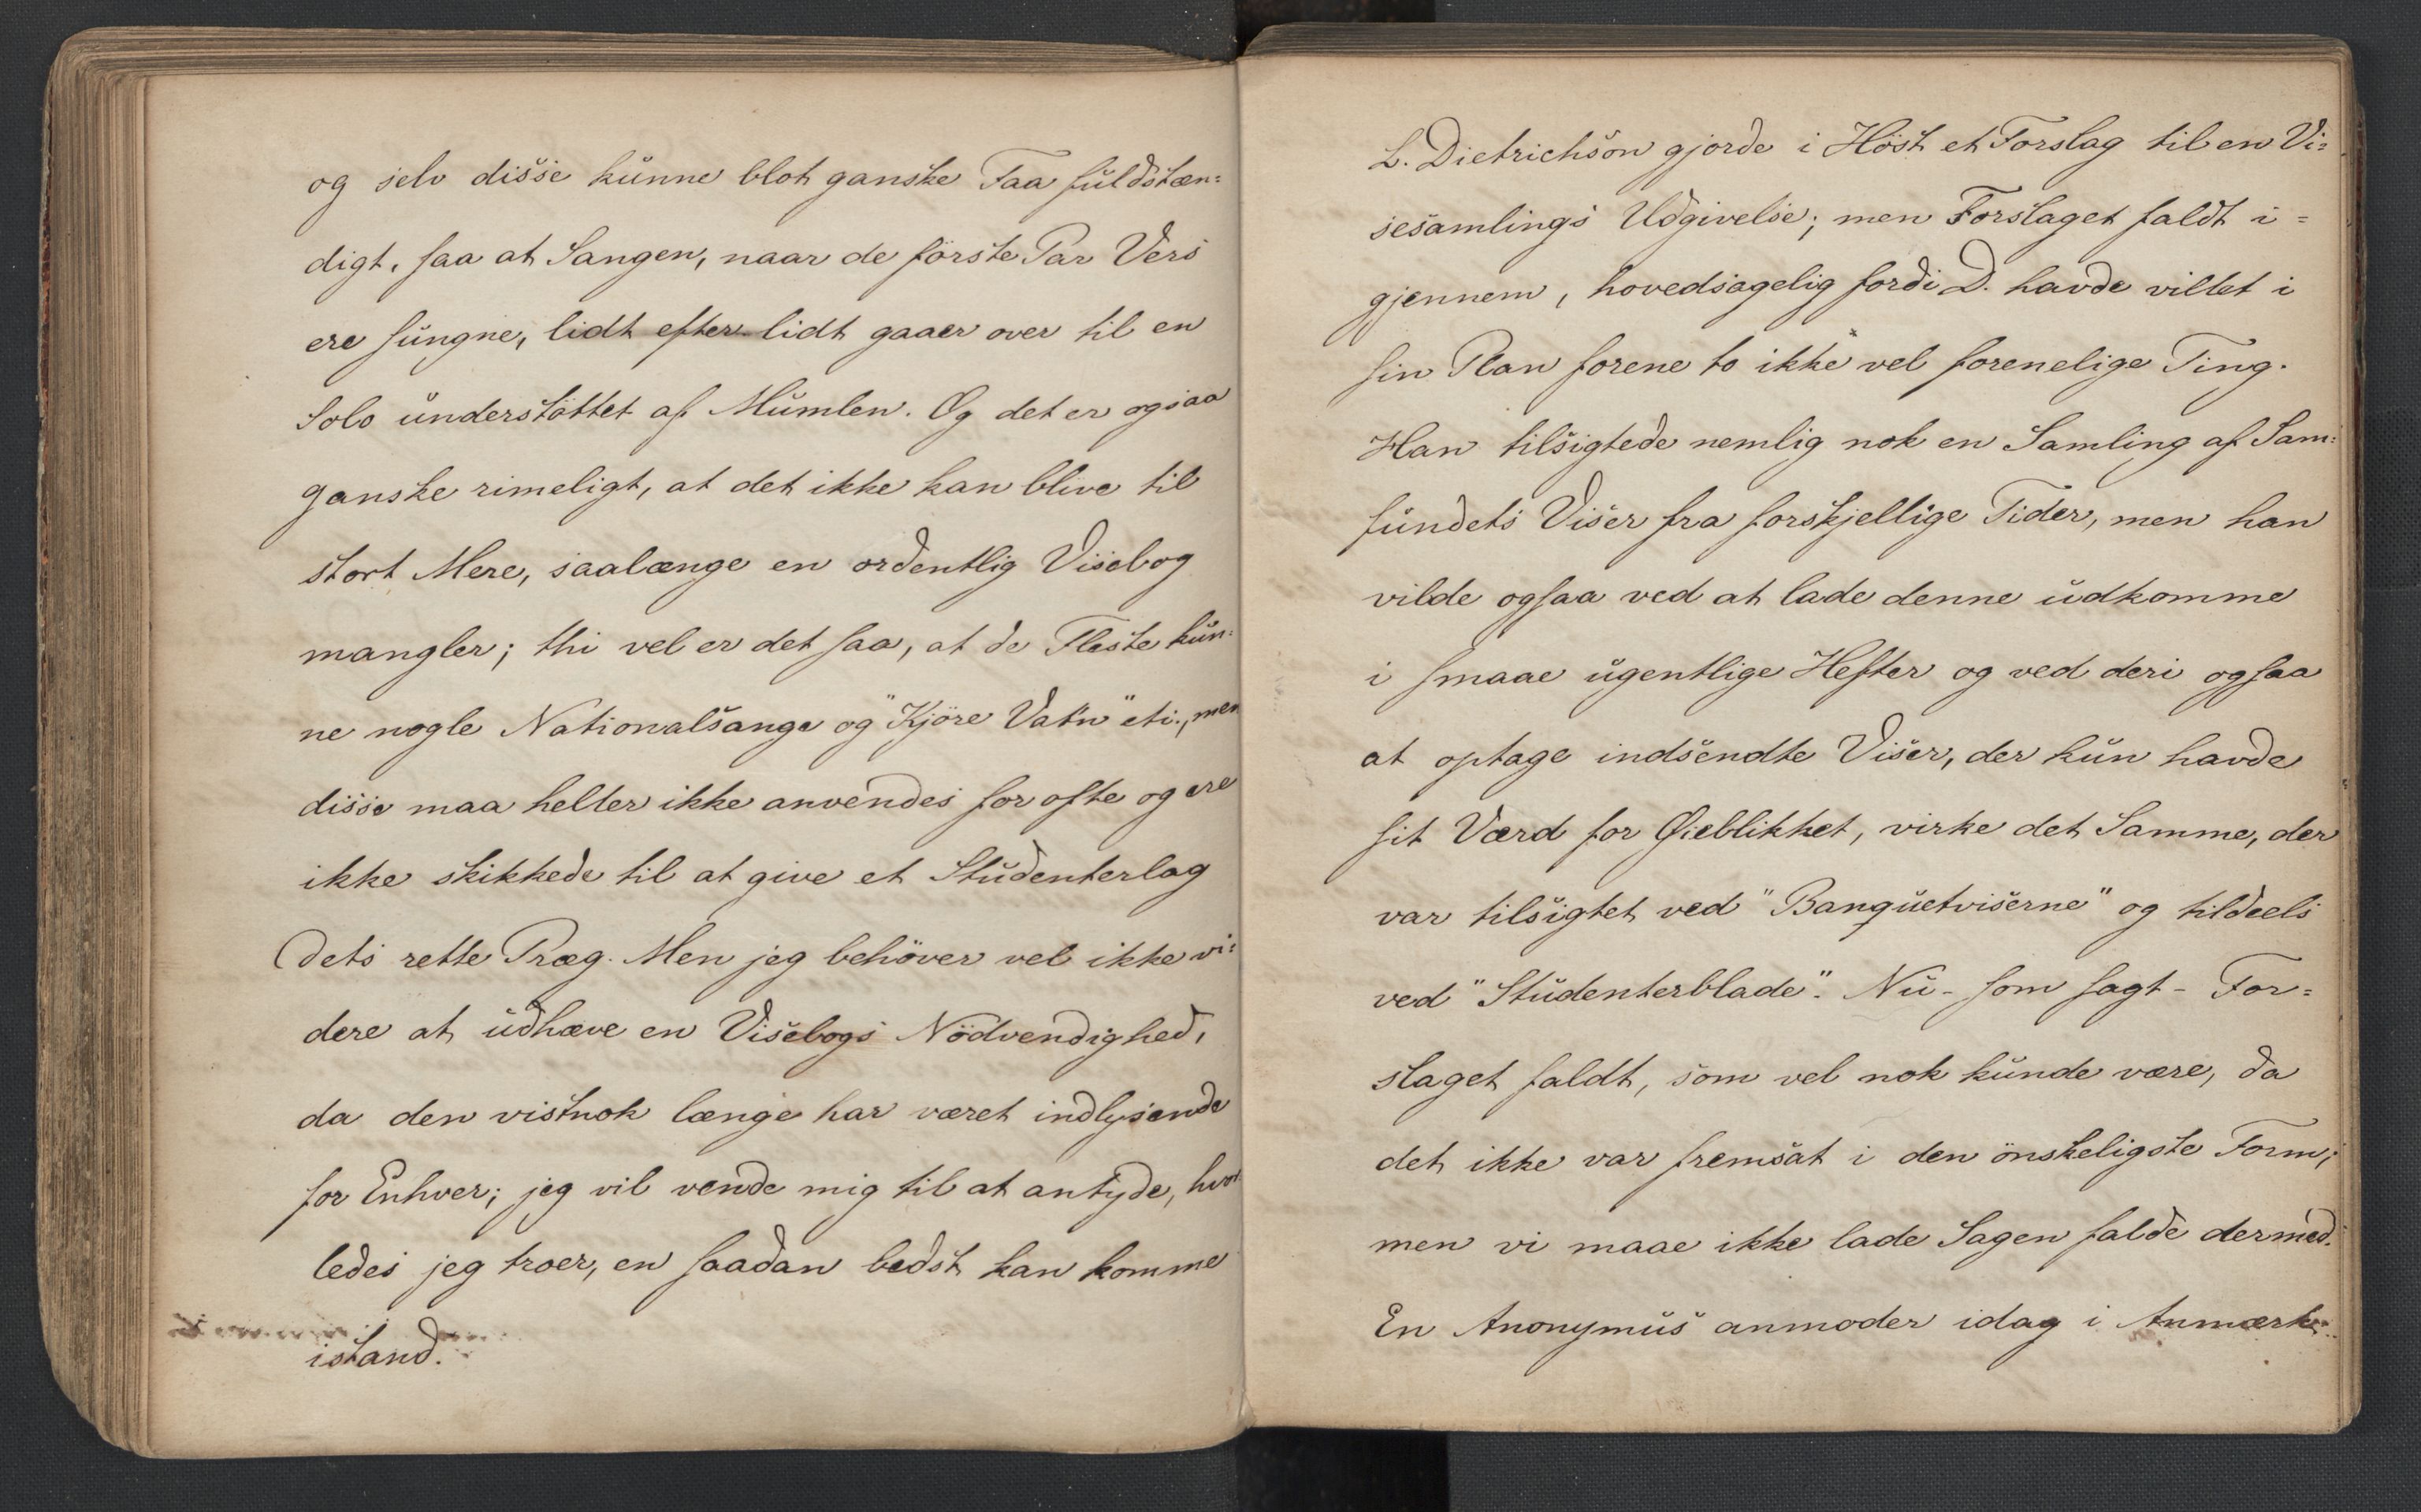 og selv disse kunne blot ganske Faa fuldstæn=
digt, saa at Sangen, naar de förste Par Vers
ere sungne, lidt efter lidt gaaer over til en
Solo understöttet af Mumlen. Og det er ogsaa
ganske rimeligt, at det ikke kan blive til
stort Mere, saalænge en ordentlig Visebog
mangler; thi vel er det saa, at de Fleste kun=
ne nogle Nationalsange og "Kjöre Vatn" etc., men
disse maa heller ikke anvendes for ofte og ere
ikke skikkede til at give et Studenterlag
dets rette Præg. Men jeg behöver vel ikke vi=
dere at udhæve en Visebogs Nödvendighed,
da den vistnok længe har været indlysende
for Enhver; jeg vil vende mig til at antyde, hvor
ledes jeg troer, en saadan bedst kan komme
istand.
L. Dietrichson gjorde i Höst et Forslag til en Vi=
sesamlings Udgivelse; men Forslaget faldt i=
gjennem, hovedsagelig fordi D. havde villet i
sin Plan forene to ikke vel forenelige Ting.
Han tilsigtede nemlig nok en Samling af Sam=
fundets Viser fra forskjellige Tider, men han
vilde ogsaa ved at lade denne udkomme
i smaae ugentlige Hefter og ved deri ogsaa
at optage indsendte Viser, der kun havde
sit Værd for Øieblikket, virke det Samme, der
var tilsigtet ved "Banquetviserne" og tildeels
ved "Studenterblade". Nu - som sagt - For=
slaget faldt, som vel nok kunde være, da
det ikke var fremsat i den önskeligste Form;
men vi maae ikke lade Sagen falde dermed.
En Anonymus anmoder idag i Anmærk=